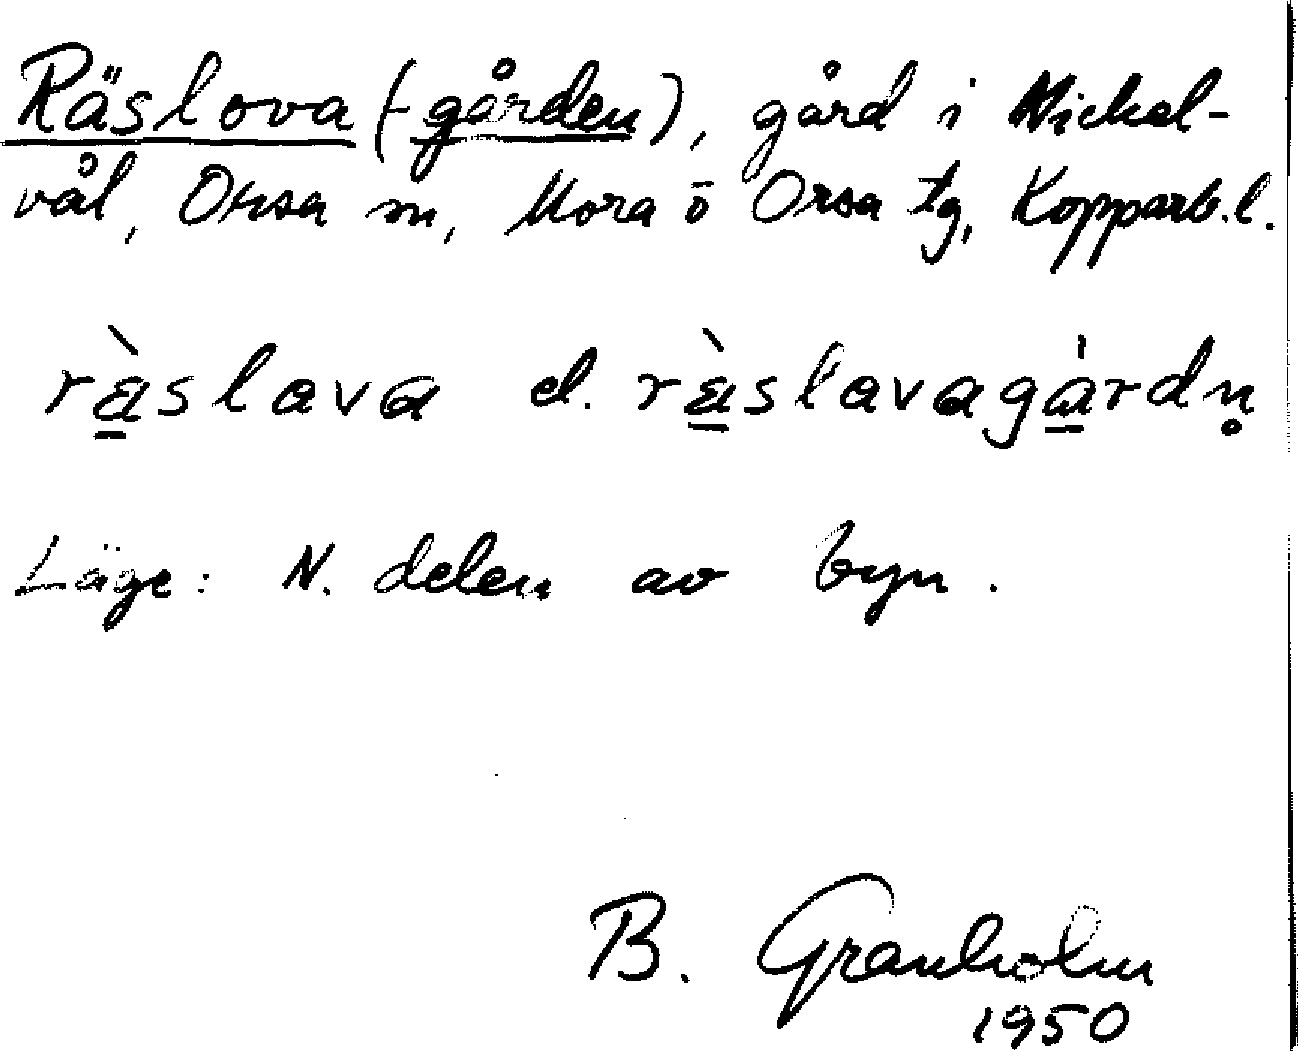 Räslova (-gården), gård i Mickel-
vål, Orsa sn, Mora o Orsa tg, Kopparb. l.
ràslava el. ràslavagárdn̥
Läge: N. delen av byn.
B. Granholm
1950